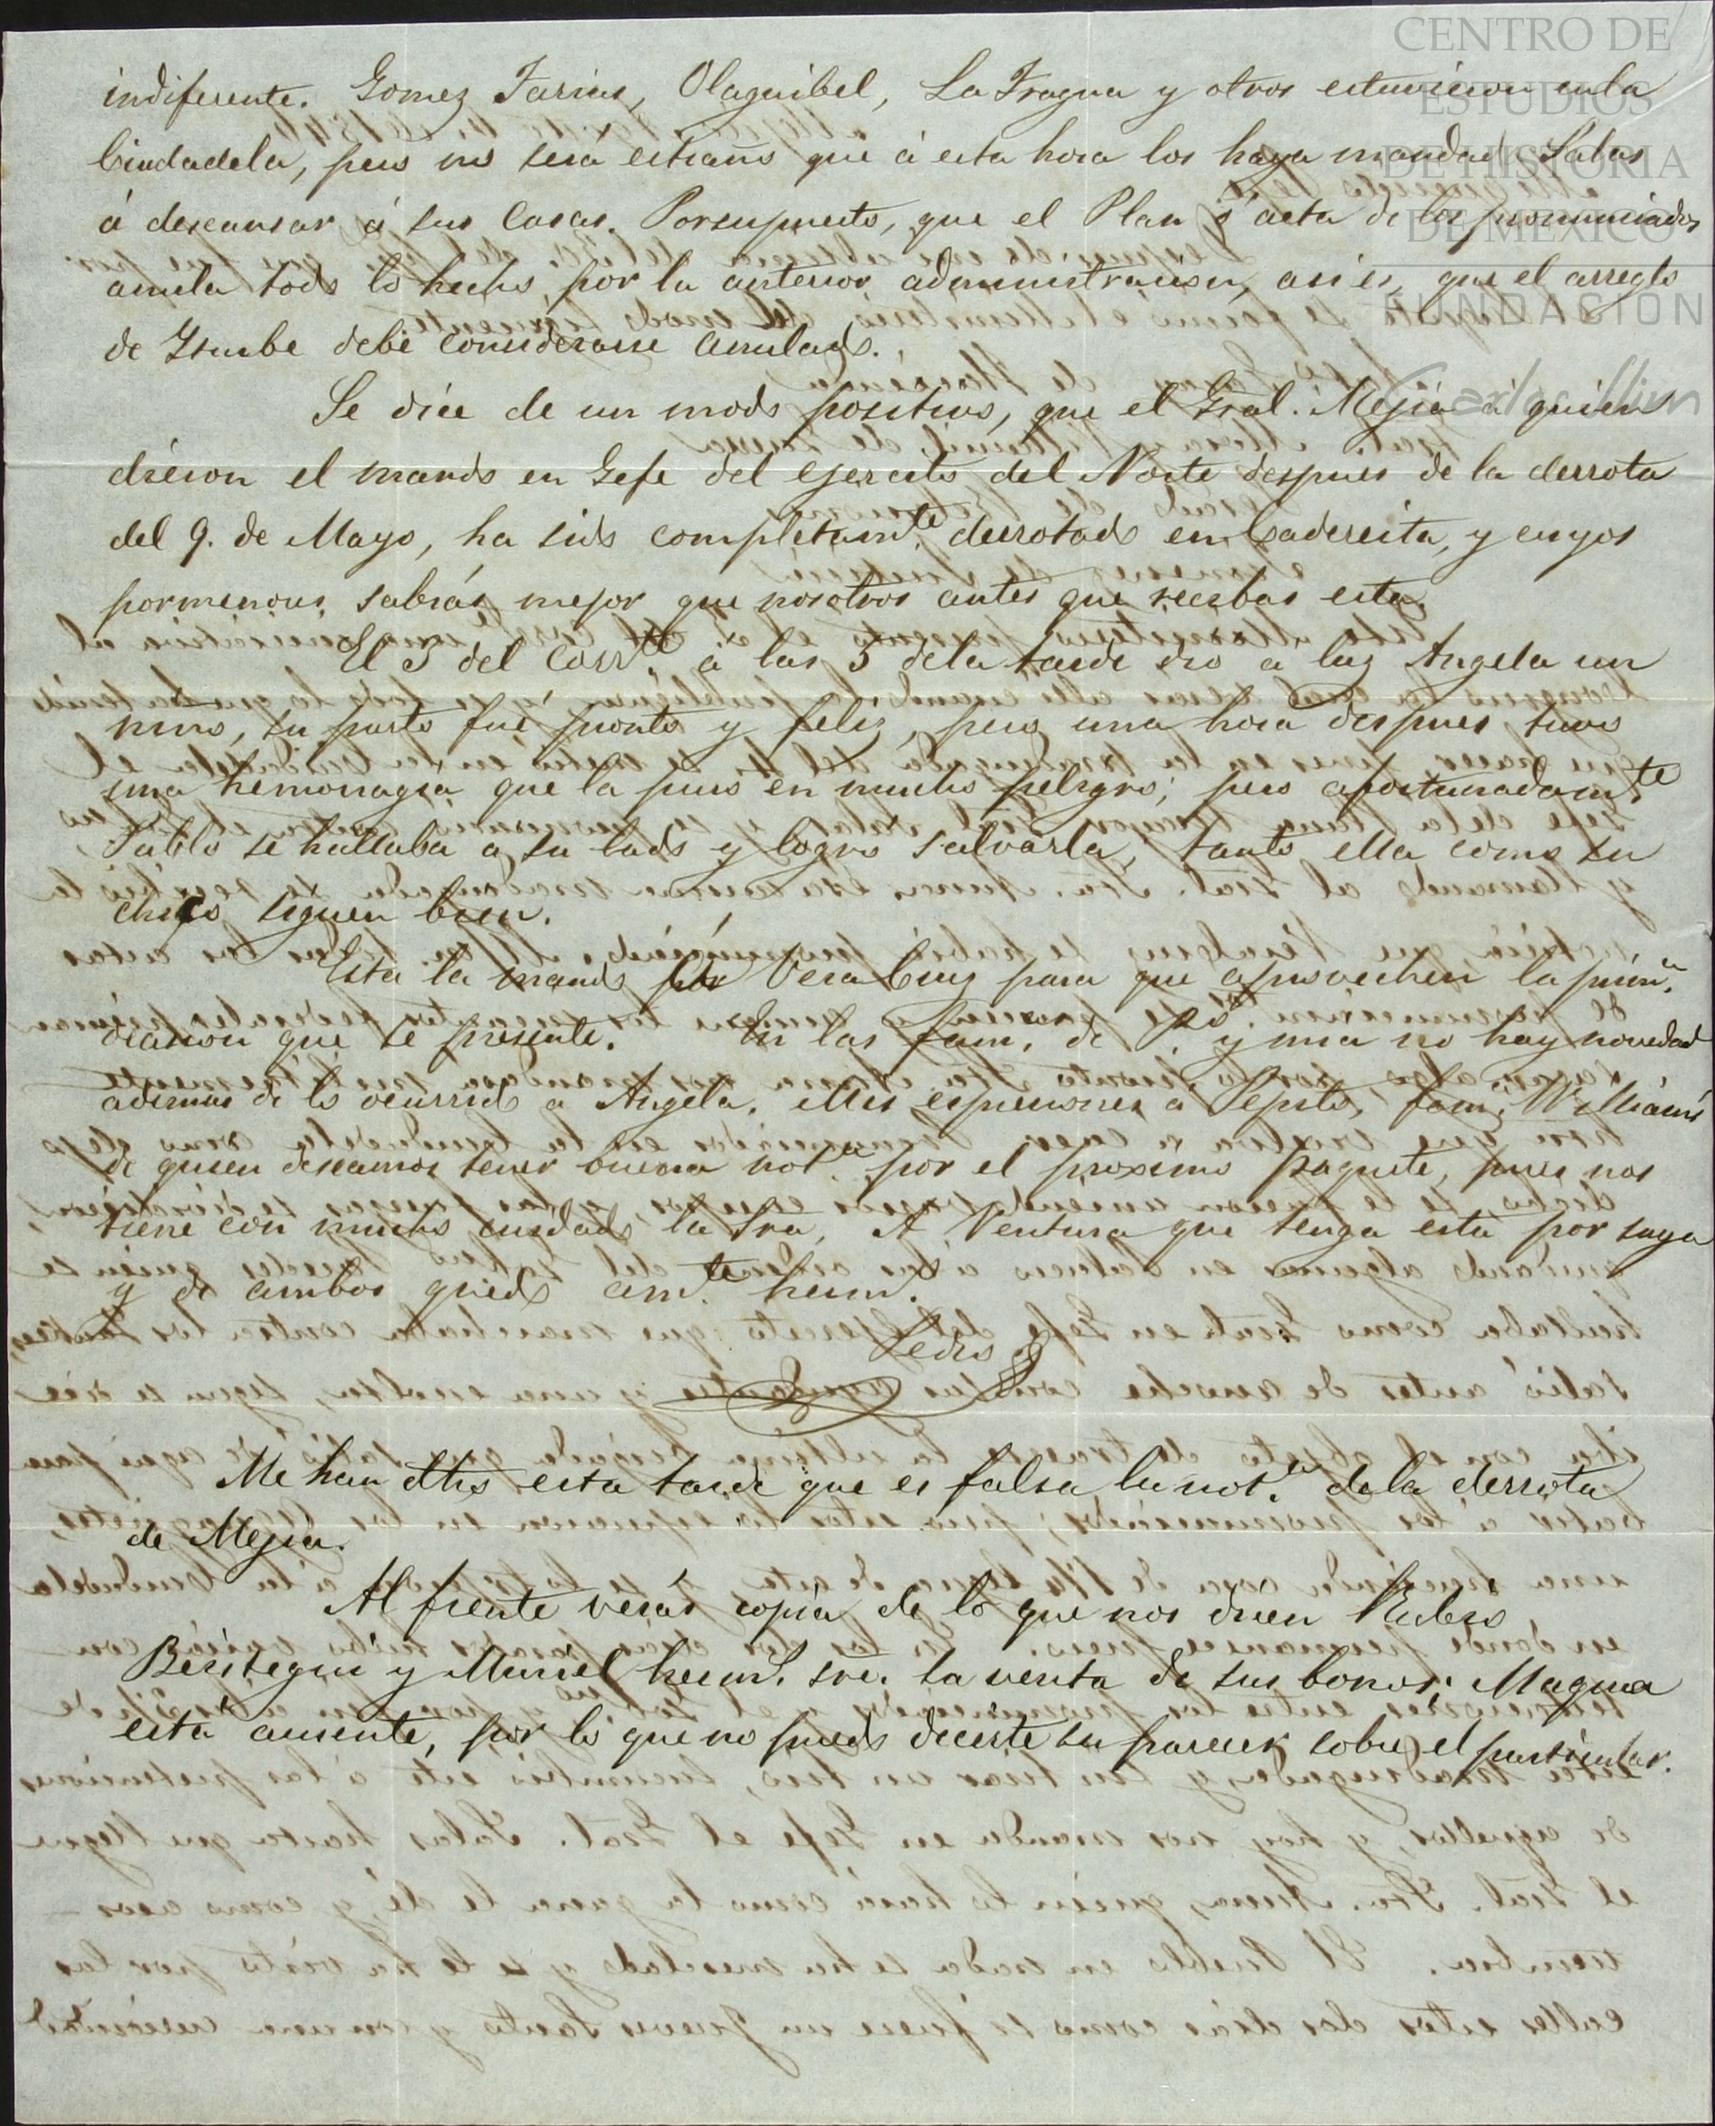 CENTRO DE
ESTUDIOS
DE HISTORIA
DE MEXICO
FUNDACIÓN
Carlos Slim
indiferente. Gomez Farias, Olaguibel, La Fragua y otros estuvieron en la
Ciudadela, pero no será estraño que á esta hora los haya mandado Salas
á descansar á sus Casas. Por supuesto, que el Plan ó acta de los pronunciados
anula todo lo hecho por la anterior administracion, asi es, que el arreglo
de Yturbe debe considerarse anulado.
Se dice de un modo positivo, que el Gral. Mejia á quien
dieron el mando en Gefe del ejercito del Norte despues de la derrota
del 9. de Mayo, ha sido completamte. derrotado en Cadereita, y cuyos
pormenores sabrás mejor que nosotros antes que recibas esta.
El 3 del Corrte. á las 5 de la tarde dio a luz Angela un
niño, su parto fué pronto y feliz, pero una hora despues tuvo
una hemorragia que la puso en mucho peligro; pero afortunadamte.
Pablo se hallaba a su lado y logró salvarla, tanto ella como su
chico siguen bien.
Esta la mando por Vera Cruz para que aprovechen la primª.
ocasion que se presente. En las fams. de Po. y mia no hay novedad
ademas de lo ocurrido a Angela. Mis espresiones a Pepito, fama. Williams
de quien deseamos tener buena nota. por el proximo paquete, pues nos
tiene con mucho cuidado la Sra, A Ventura que tenga esta por suya
y de ambos quedo amte. hermo.
Pedro
Me han dho esta tarde que es falsa la nota. de la derrota
de Mejia.
Al frente verás copia de lo que nos dicen Rubio
Beristegui y Muriel hermo. sre. la venta de sus bonos; Magua
está ausente, por lo que no puedo decirte su parecer sobre el particular.